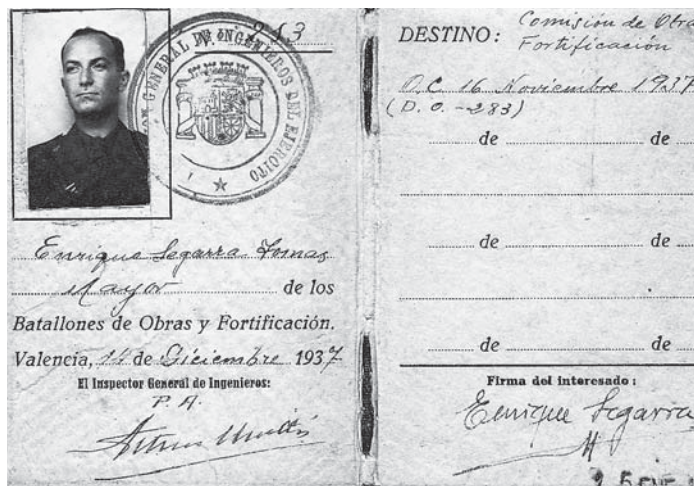 Nº 283
GENERAL DE INGENIEROS DEL EJERCITO
Enrique Segarra Tomas
Mayor de los
Batallones de Obras y Fortificación.
Valencia, 14 de Diciembre 1937
El Inspector General de Ingenieros:
P. A.
DESTINO: Comisión de Obra
Fortificación
O.C. 16 Noviembre 1937
(D. O. -283)
de de
de de
de de
Firma del interesado:
Enrique Segarra